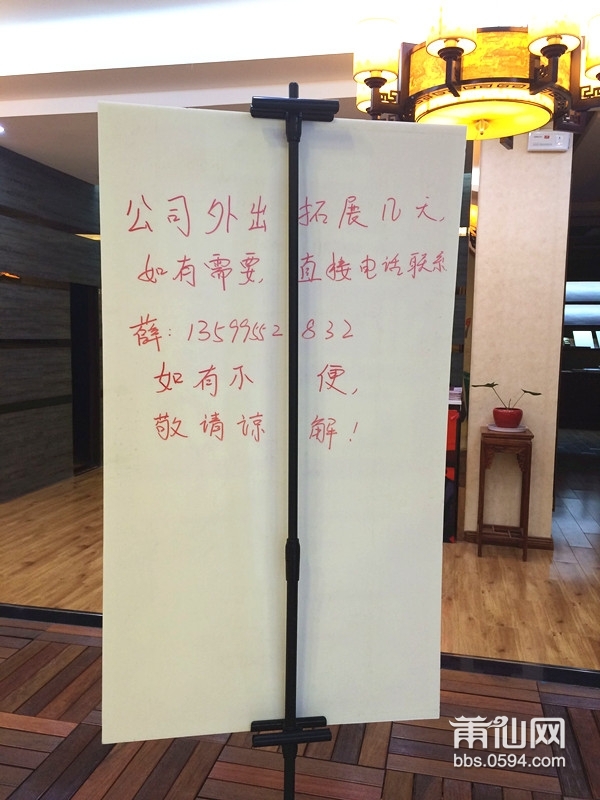 公司外出拓展几天,
如有需要,直接电话联系
薛:13599552832
如有不便,
敬请谅解!
莆仙网
bbs.0594.com